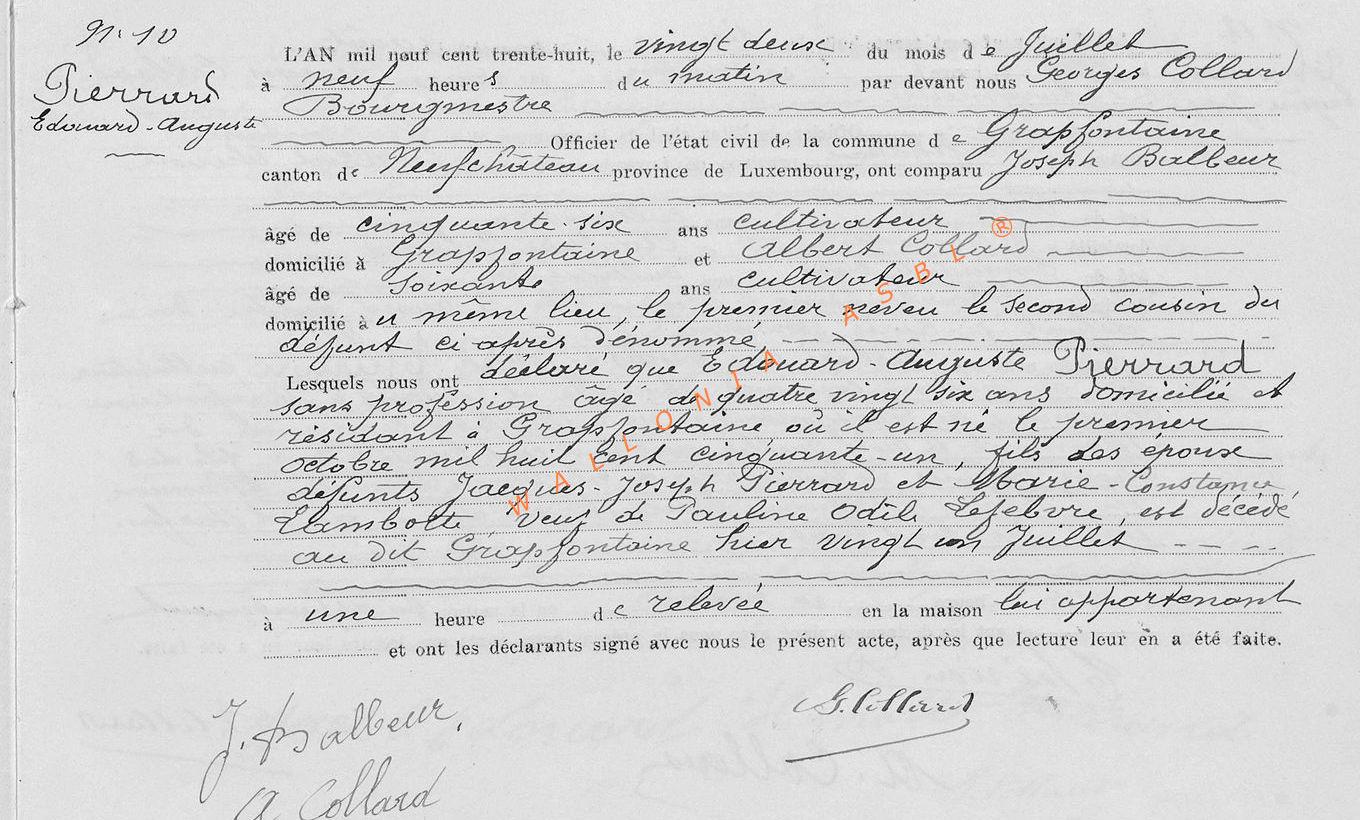 N. 10
Pierrard
Edouard-Auguste
L'AN mil neuf cent trente-huit, le vingt deux du mois de Juillet
à neuf heures du matin par devant nous Georges Collard
Bourgmestre
Officier de l'état civil de la commune de Grapfontaine
canton de Neufchâteau province de Luxembourg, ont comparu Joseph Balbeur
âgé de cinquante-six ans cultivateur
domicilié à Grapfontaine et Albert Collard
âgé de soixante ans cultivateur
domicilié au même lieu, le premier neveu le second cousin du
défunt ci après dénommé,
Lesquels nous ont déclaré que Edouard-Auguste Pierrard
sans profession âgé de quatre vingt six ans domicilié et
résidant à Grapfontaine, où il est né le premier
octobre mil huit cent cinquante-un, fils des époux
défunts Jacques-Joseph Pierrard et Marie-Constance
Lambotte veuf de Pauline Odile Lefebvre, est décédé
au dit Grapfontaine hier vingt un Juillet
à une heure de relevée en la maison lui appartenant
et ont les déclarants signé avec nous le présent acte, après que lecture leur en a été faite.
G. Collard
J. Balbeur,
A Collard
WALLONIA ASBL ®